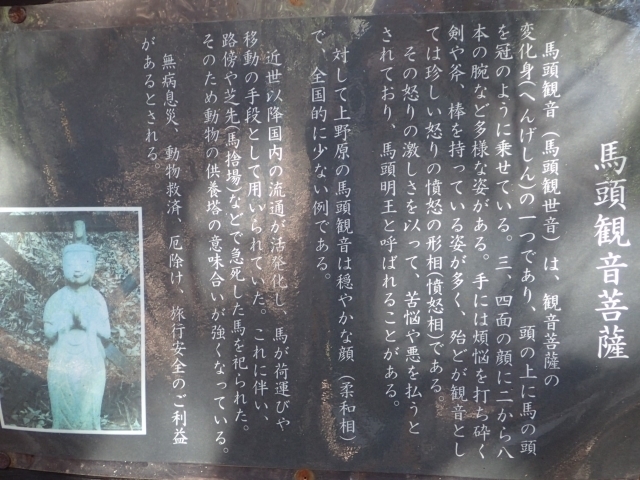 馬頭観音菩薩
馬頭観音（馬頭観世音）は、観音菩薩の
変化身(へんげしん)の一つであり、頭の上に馬の頭
を冠のように乗せている。三、四面の顔に二から八
本の腕など多様な姿がある。手には煩悩を打ち砕く
剣や斧、棒を持っている姿が多く、殆どが観音とし
ては珍しい怒りの憤怒の形相(憤怒相)である。
その怒りの激しさを以って、苦悩や悪を払うと
されており、馬頭明王と呼ばれることがある。
対して上野原の馬頭観音は穏やかな顔（柔和相）
で、全国的に少ない例である。
近世以降国内の流通が活発化し、馬が荷運びや
移動の手段として用いられていた。これに伴い、
路傍や芝先(馬捨場)などで急死した馬を祀られた。
そのため動物の供養塔の意味合いが強くなっている。
無病息災、動物救済、厄除け、旅行安全のご利益
があるとされる。